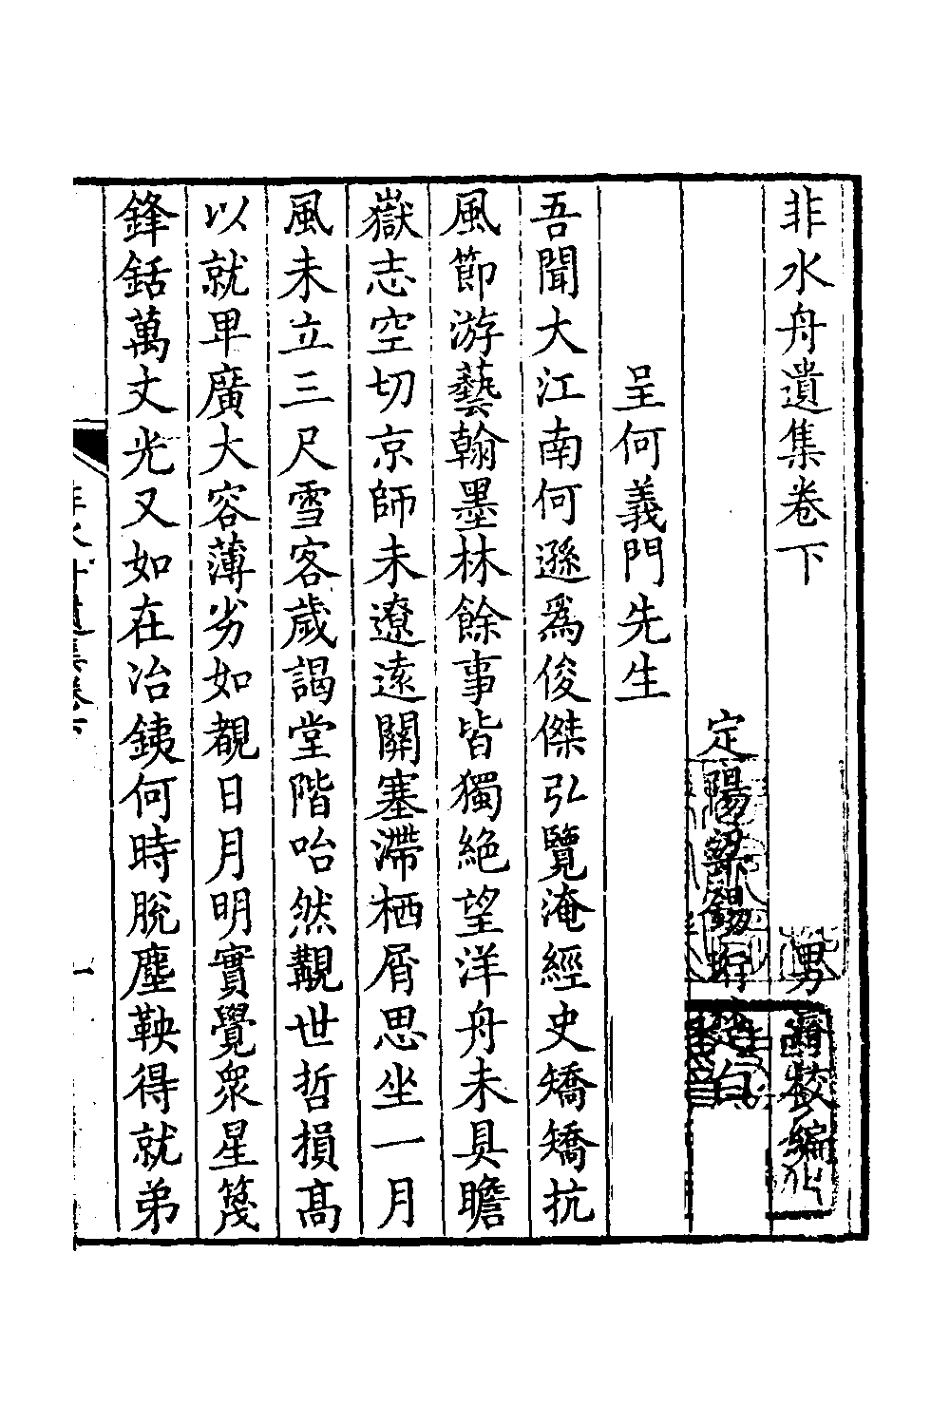 非水舟遺集卷下　男　校編
定陽梁錫珩　白
呈何義門先生
吾聞大江南何遜爲俊傑弘覽淹經史矯矯抗
風節游藝翰墨林餘事皆獨絶望洋舟未具瞻
嶽志空切京師未遼遠關塞滯栖屑思坐一月
風未立三尺雪客歲謁堂階哈然觀世哲損高
以就卑廣大容薄劣如覩日月明實覺衆星篾
鋒銛萬丈光又如在冶銕何時脫塵鞅得就弟